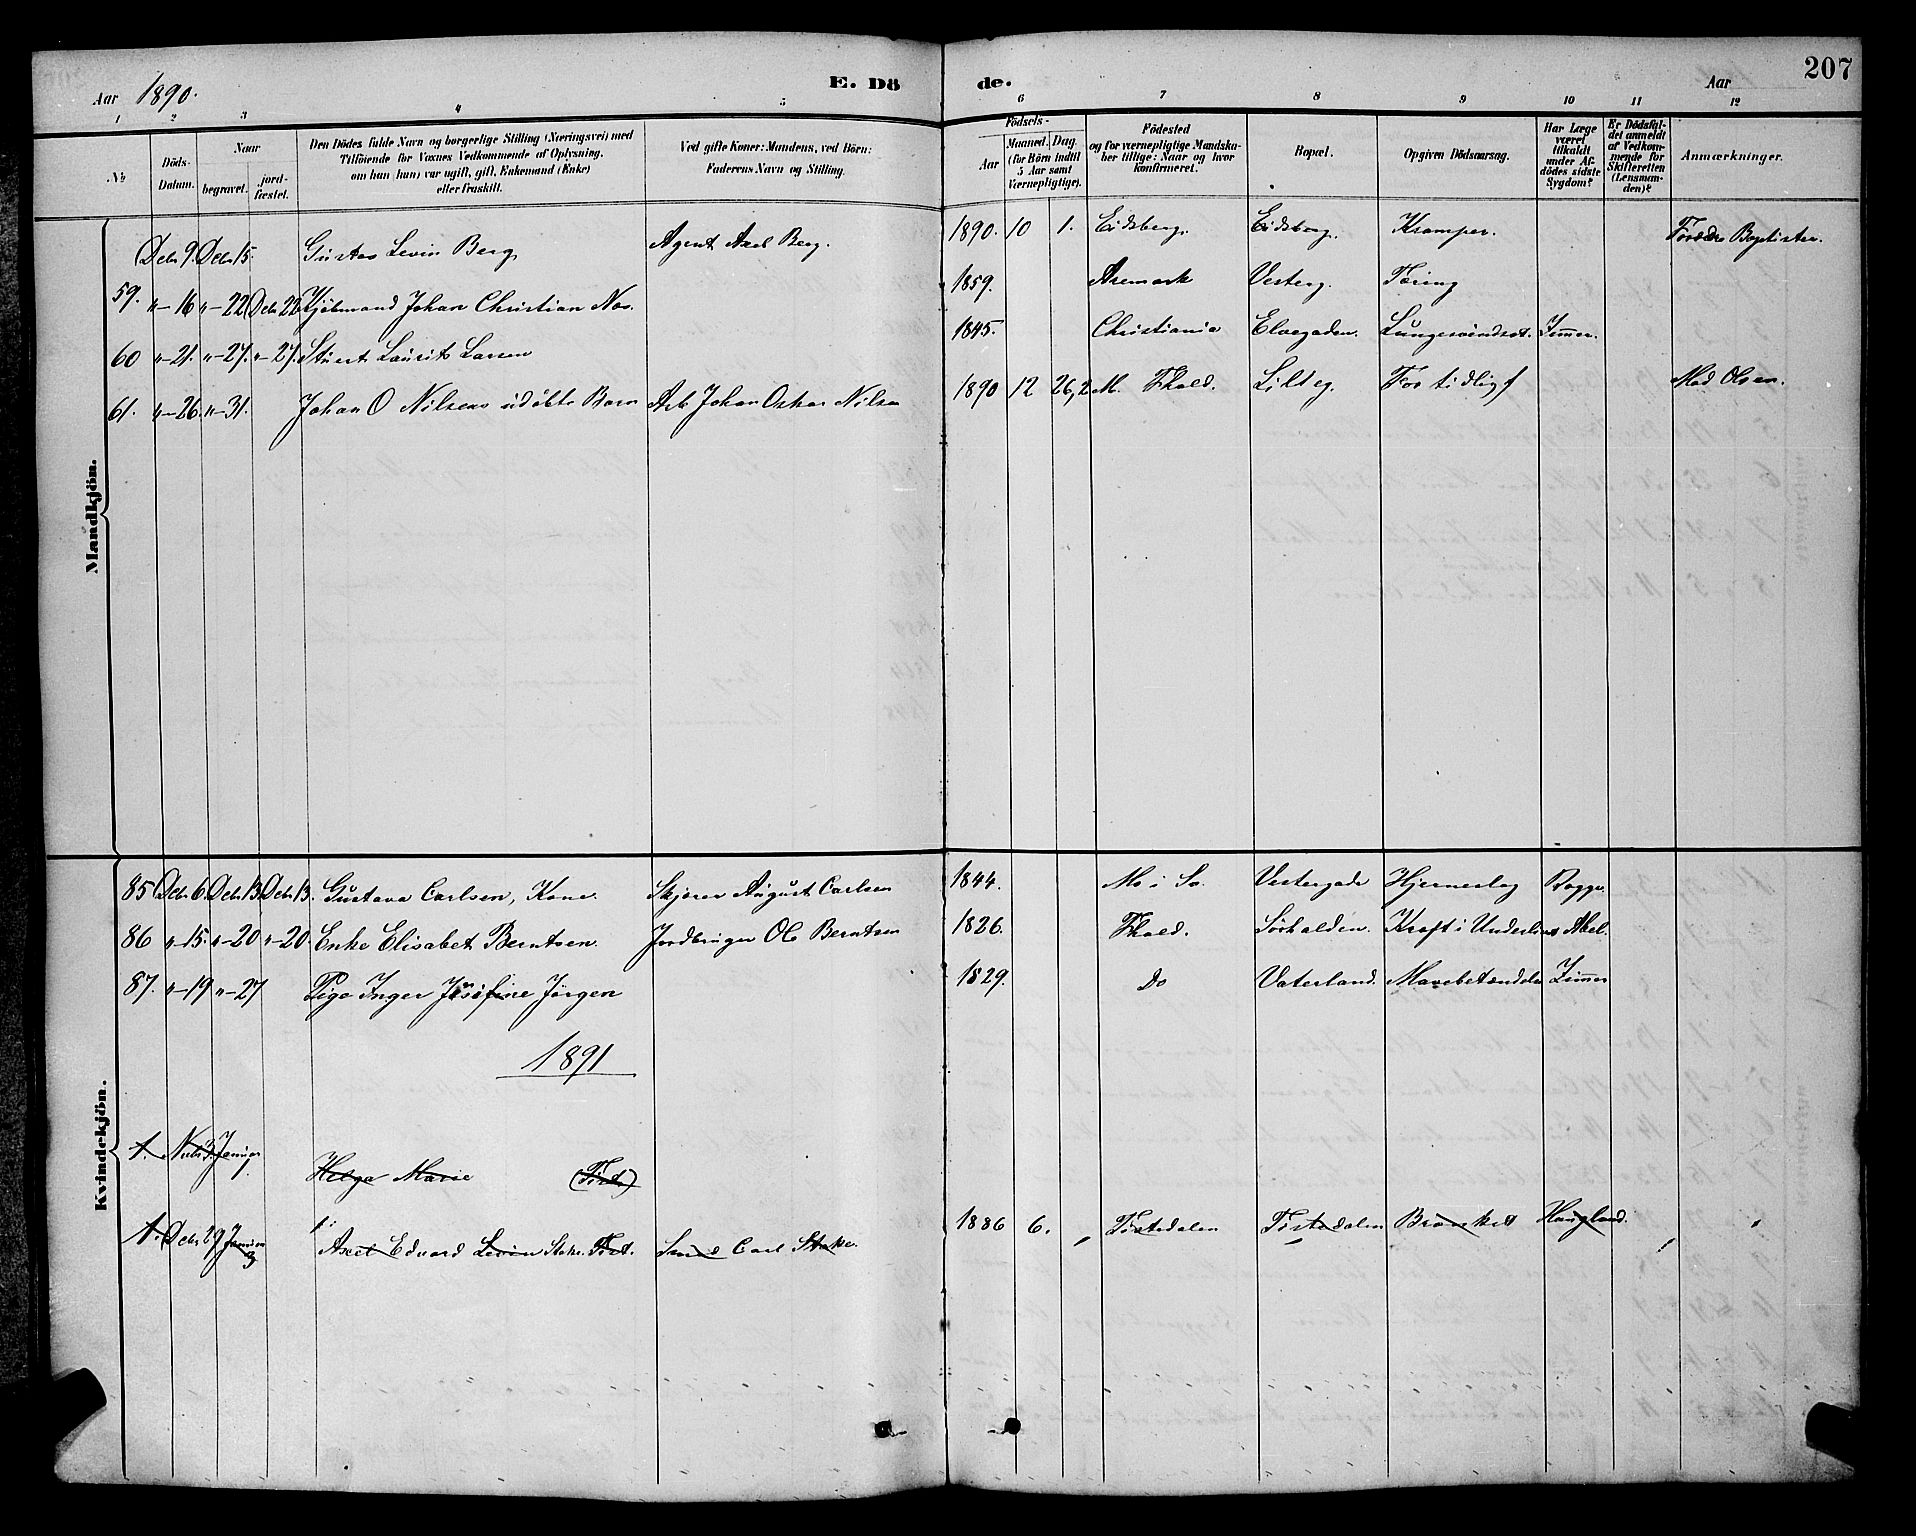 Aar 1890.
E. Dö de.
Aar 207
1 2 3 4 5 6 7 8 9 10 11 12
№
Döds-Datum.
Naar begravet. jord-fæstet.
Den Dödes fulde Navn og borgerlige Stilling (Næringsvei) med Tilföiende for Voxnes Vedkommende af Oplysning, om han (hun) var ugift, gift, Enkemand (Enke) eller fraskilt.
Ved gifte Koner: Mandens, ved Börn: Faderens Navn og Stilling.
Födsels-
Aar Maaned. Dag. (for Börn indtil 5 Aar samt Værnepligtige).
Födested og for værnepligtige Mandskaber tillige: Naar og hvor konfirmeret.
Bopæl.
Opgiven Dödsaarsag.
Har Læge været tilkaldt under Afdödes sidste Sygdom?
Er Dödsfaldet anmeldt af Vedkommende for Skifteretten (Lensmanden)?
Anmærkninger.
Mandkjön.
(Decbr 9. Decbr 15. Gustav Levin Berg Agent Axel Berg. 1890. 10 1. Eidsberg. Eidsberg. Kramper. Forældre Baptister.
59. "-16 "-22 Decbr 22 Kjöbmand Johan Christian Næs. 1859. Aremark Vesterg. Tæring
60 "-21. "-27. "-27. Stuert Laurits Larsen 1845. Christiania Elvegaden. Lungesvindsot. Zimmer.
61. "-26. "-31. Johan O Nilsens udöbte Barn Arb. Johan Oskar Nilsen 1890 12 26,2 M. Fhald. Lilleg. For tidlig f Mad Olsen.
Kvindekjön.
85 Decbr 6. Decbr 13 Decbr 13. Gustava Carlsen, Kone. Skjörer August Carlsen 1844. Mo i Sv. Vestergade Hjerneslag Bogge.
86 "-15. "-20 "-20. Enke Elisabet Berntsen. Jordbruger Ole Berntsen 1826. Fhald. Sörhalden. Kræft i Underlivet Abel.
87. "-19 "-27 Pige Inger Josefine Jörgen 1829. Do Vaterland. Mavebetændelse Zimmer
1891
1. Januar Helga Marie (Tist.)
1. Decbr 29 Januar 3 Axel Eduard Levin Stake. Tist. Smed Carl Stake. 1886 6. Tistedalen Tistedalen Haugland.